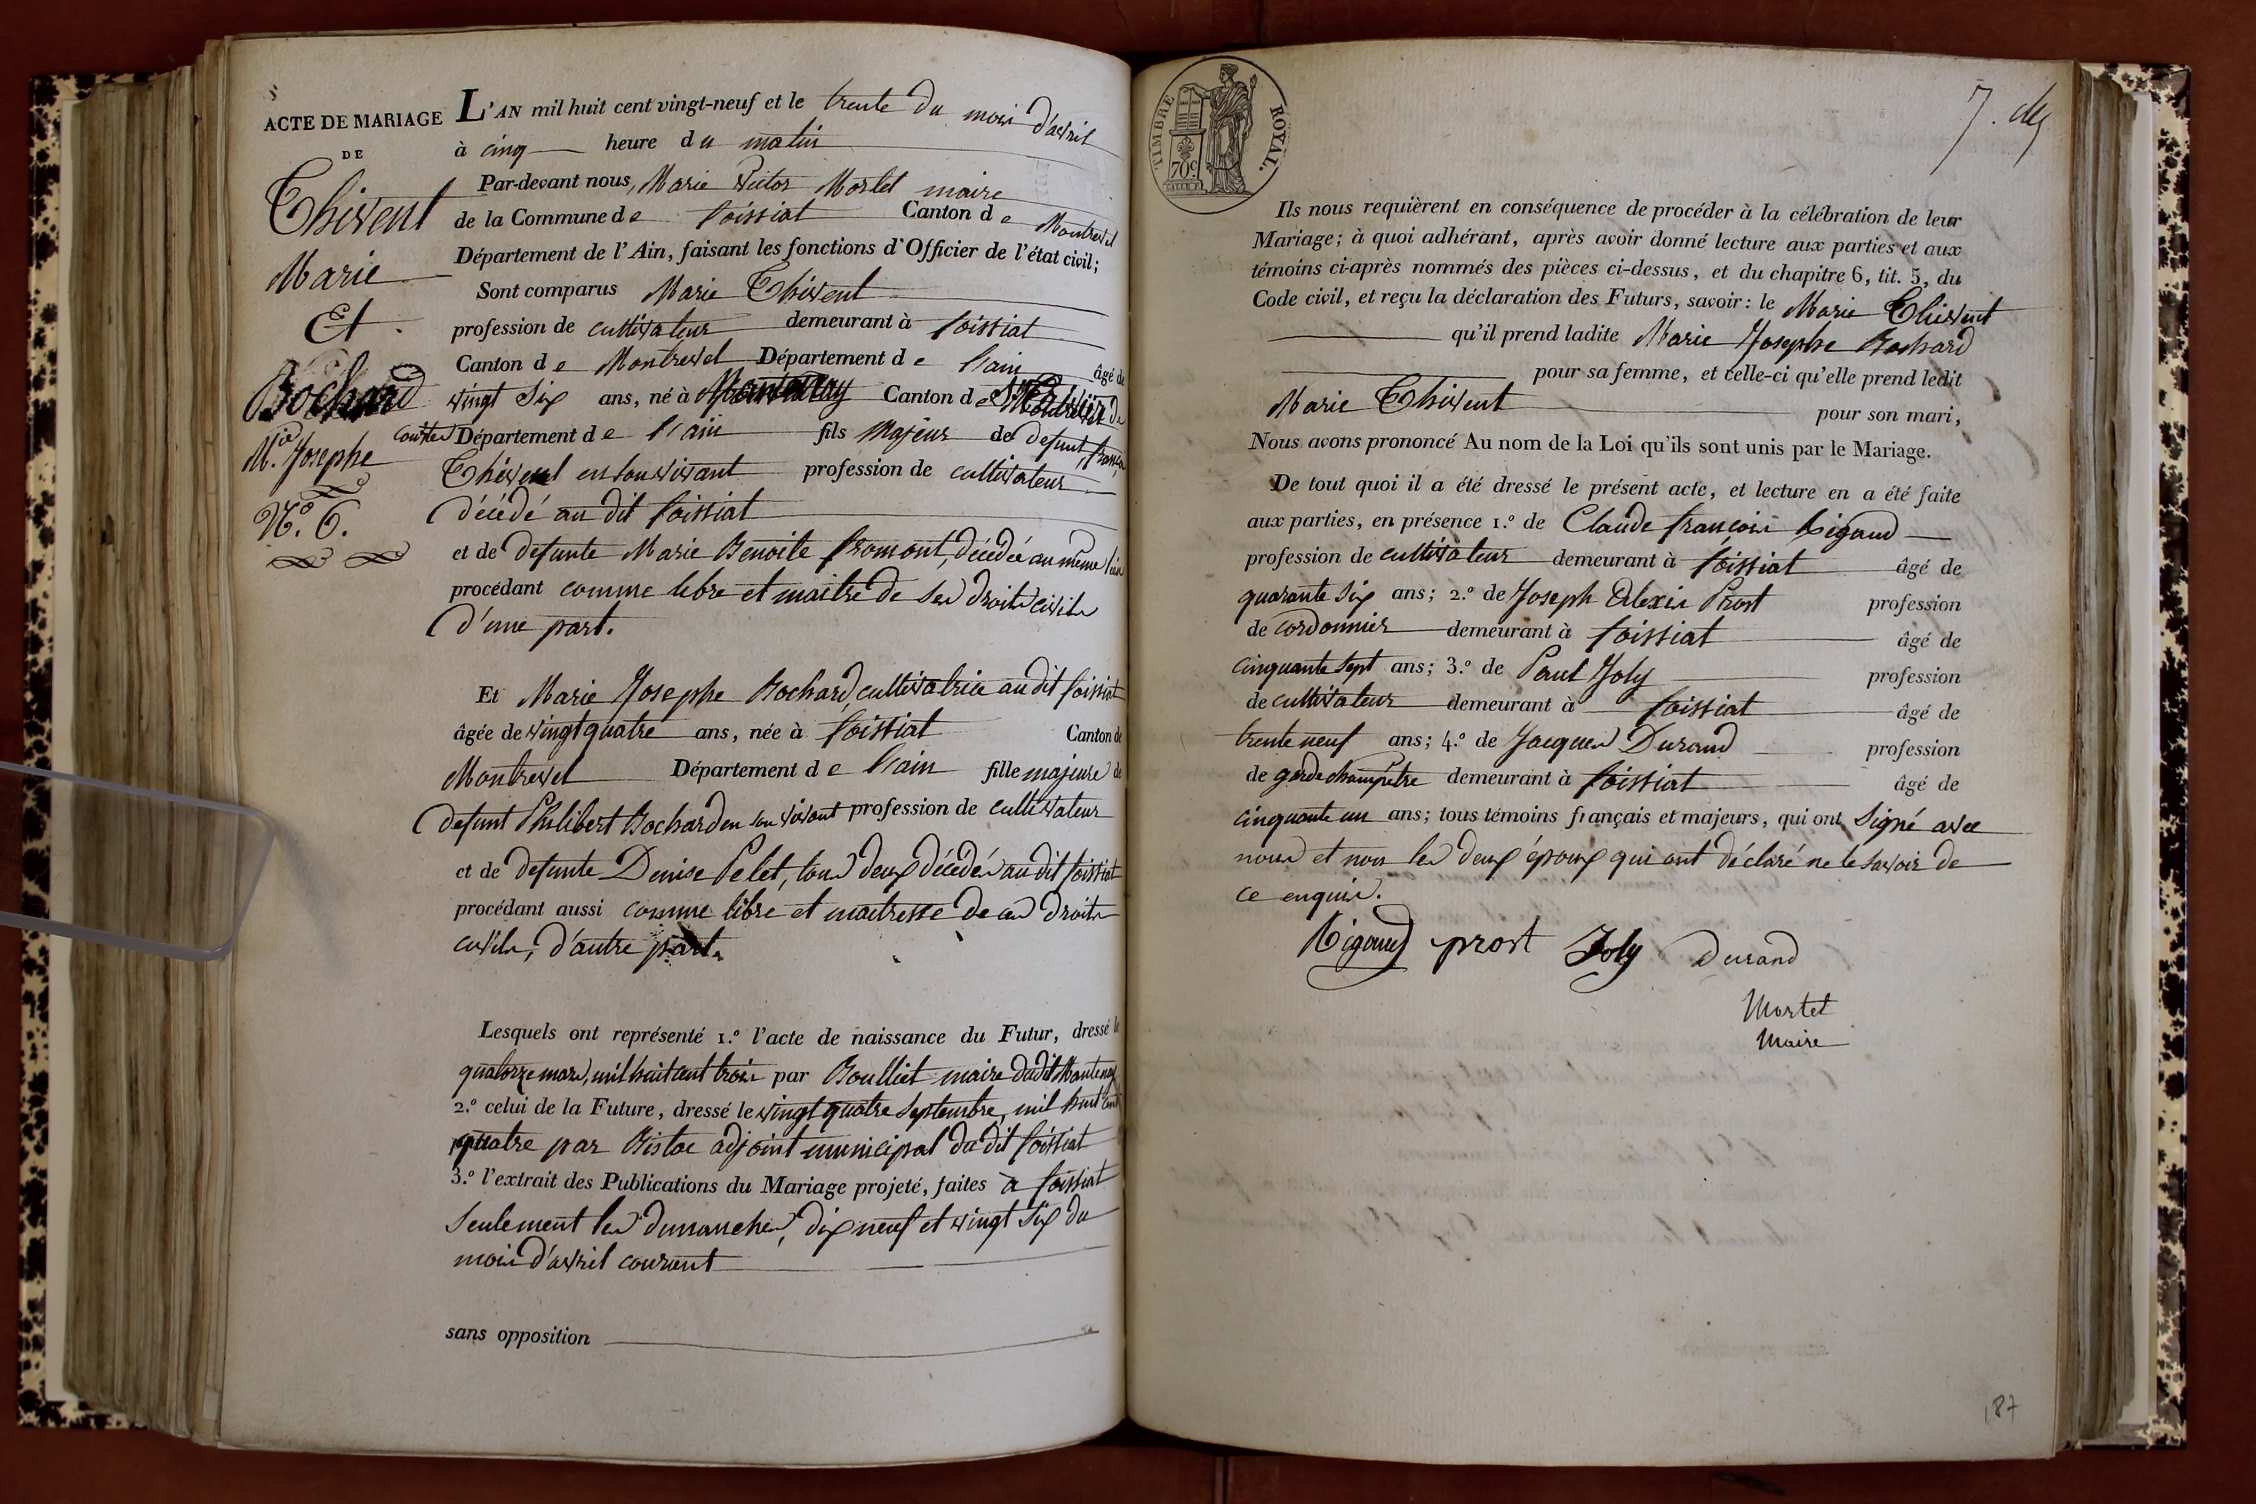 ACTE DE MARIAGE
DE
Thivent
Marie
Et
Bochard
M.ie Josephe
N.o 6.
L'AN mil huit cent vingt-neuf et le trente du mois d'avril
à cinq heure du matin
Par-devant nous, Marie Victor Mortet maire
de la Commune de foissiat Canton de Montrevel
Département de l'Ain, faisant les fonctions d'Officier de l'état civil;
Sont comparus Marie Thivent
profession de cultivateur demeurant à foissiat
Canton de Montrevel Département de l'ain âgé de
vingt six ans, né à Mantenay Canton de St
Département de l'ain fils majeur de defunt françois
Thivent en son vivant profession de cultivateur
décédé au dit foissiat
et de defunte Marie Benoite fromont, décédée au même lieu
procédant comme libre et maitre de ses droits civils
d'une part.
Et Marie Josephe Bochard, cultivatrice au dit foissiat
âgée de vingt quatre ans, née à foissiat Canton de
Montrevel Département de l'ain fille majeure de
defunt Philibert Bochard en son vivant profession de cultivateur
et de defunte Denise Pelet, tous deux décédés au dit foissiat
procédant aussi comme libre et maitresse de ses droits
civils, d'autre part.
Lesquels ont représenté 1.o l'acte de naissance du Futur, dressé le
quatorze mars, mil huit cent trois par Boulliet maire dudit Mantenay
2.o celui de la Future, dressé le vingt quatre septembre, mil huit cent
quatre par Bistac adjoint municipal du dit foissiat
3.o l'extrait des Publications du Mariage projeté, faites à foissiat
seulement les dimanches, dix neuf et vingt six du
mois d'avril courant
sans opposition
TIMBRE ROYAL.
70c
Ils nous requièrent en conséquence de procéder à la célébration de leur
Mariage; à quoi adhérant, après avoir donné lecture aux parties et aux
témoins ci-après nommés des pièces ci-dessus, et du chapitre 6, tit. 5, du
Code civil, et reçu la déclaration des Futurs, savoir: le Marie Thivent
qu'il prend ladite Marie Josephe Bochard
pour sa femme, et celle-ci qu'elle prend ledit
Marie Thivent pour son mari,
Nous avons prononcé Au nom de la Loi qu'ils sont unis par le Mariage.
De tout quoi il a été dressé le présent acte, et lecture en a été faite
aux parties, en présence 1.o de Claude françois Rigaud
profession de cultivateur demeurant à foissiat âgé de
quarante six ans; 2.o de Joseph Alexis Prost profession
de cordonnier demeurant à foissiat âgé de
cinquante sept ans; 3.o de Paul Joly profession
de cultivateur demeurant à foissiat âgé de
trente neuf ans; 4.o de Jacques Durand profession
de garde champêtre demeurant à foissiat âgé de
cinquante un ans; tous témoins français et majeurs, qui ont signé avec
nous et non les deux époux qui ont déclaré ne le savoir de
ce enquis.
Rigaud prost Joly Durand
Mortet
Maire
187